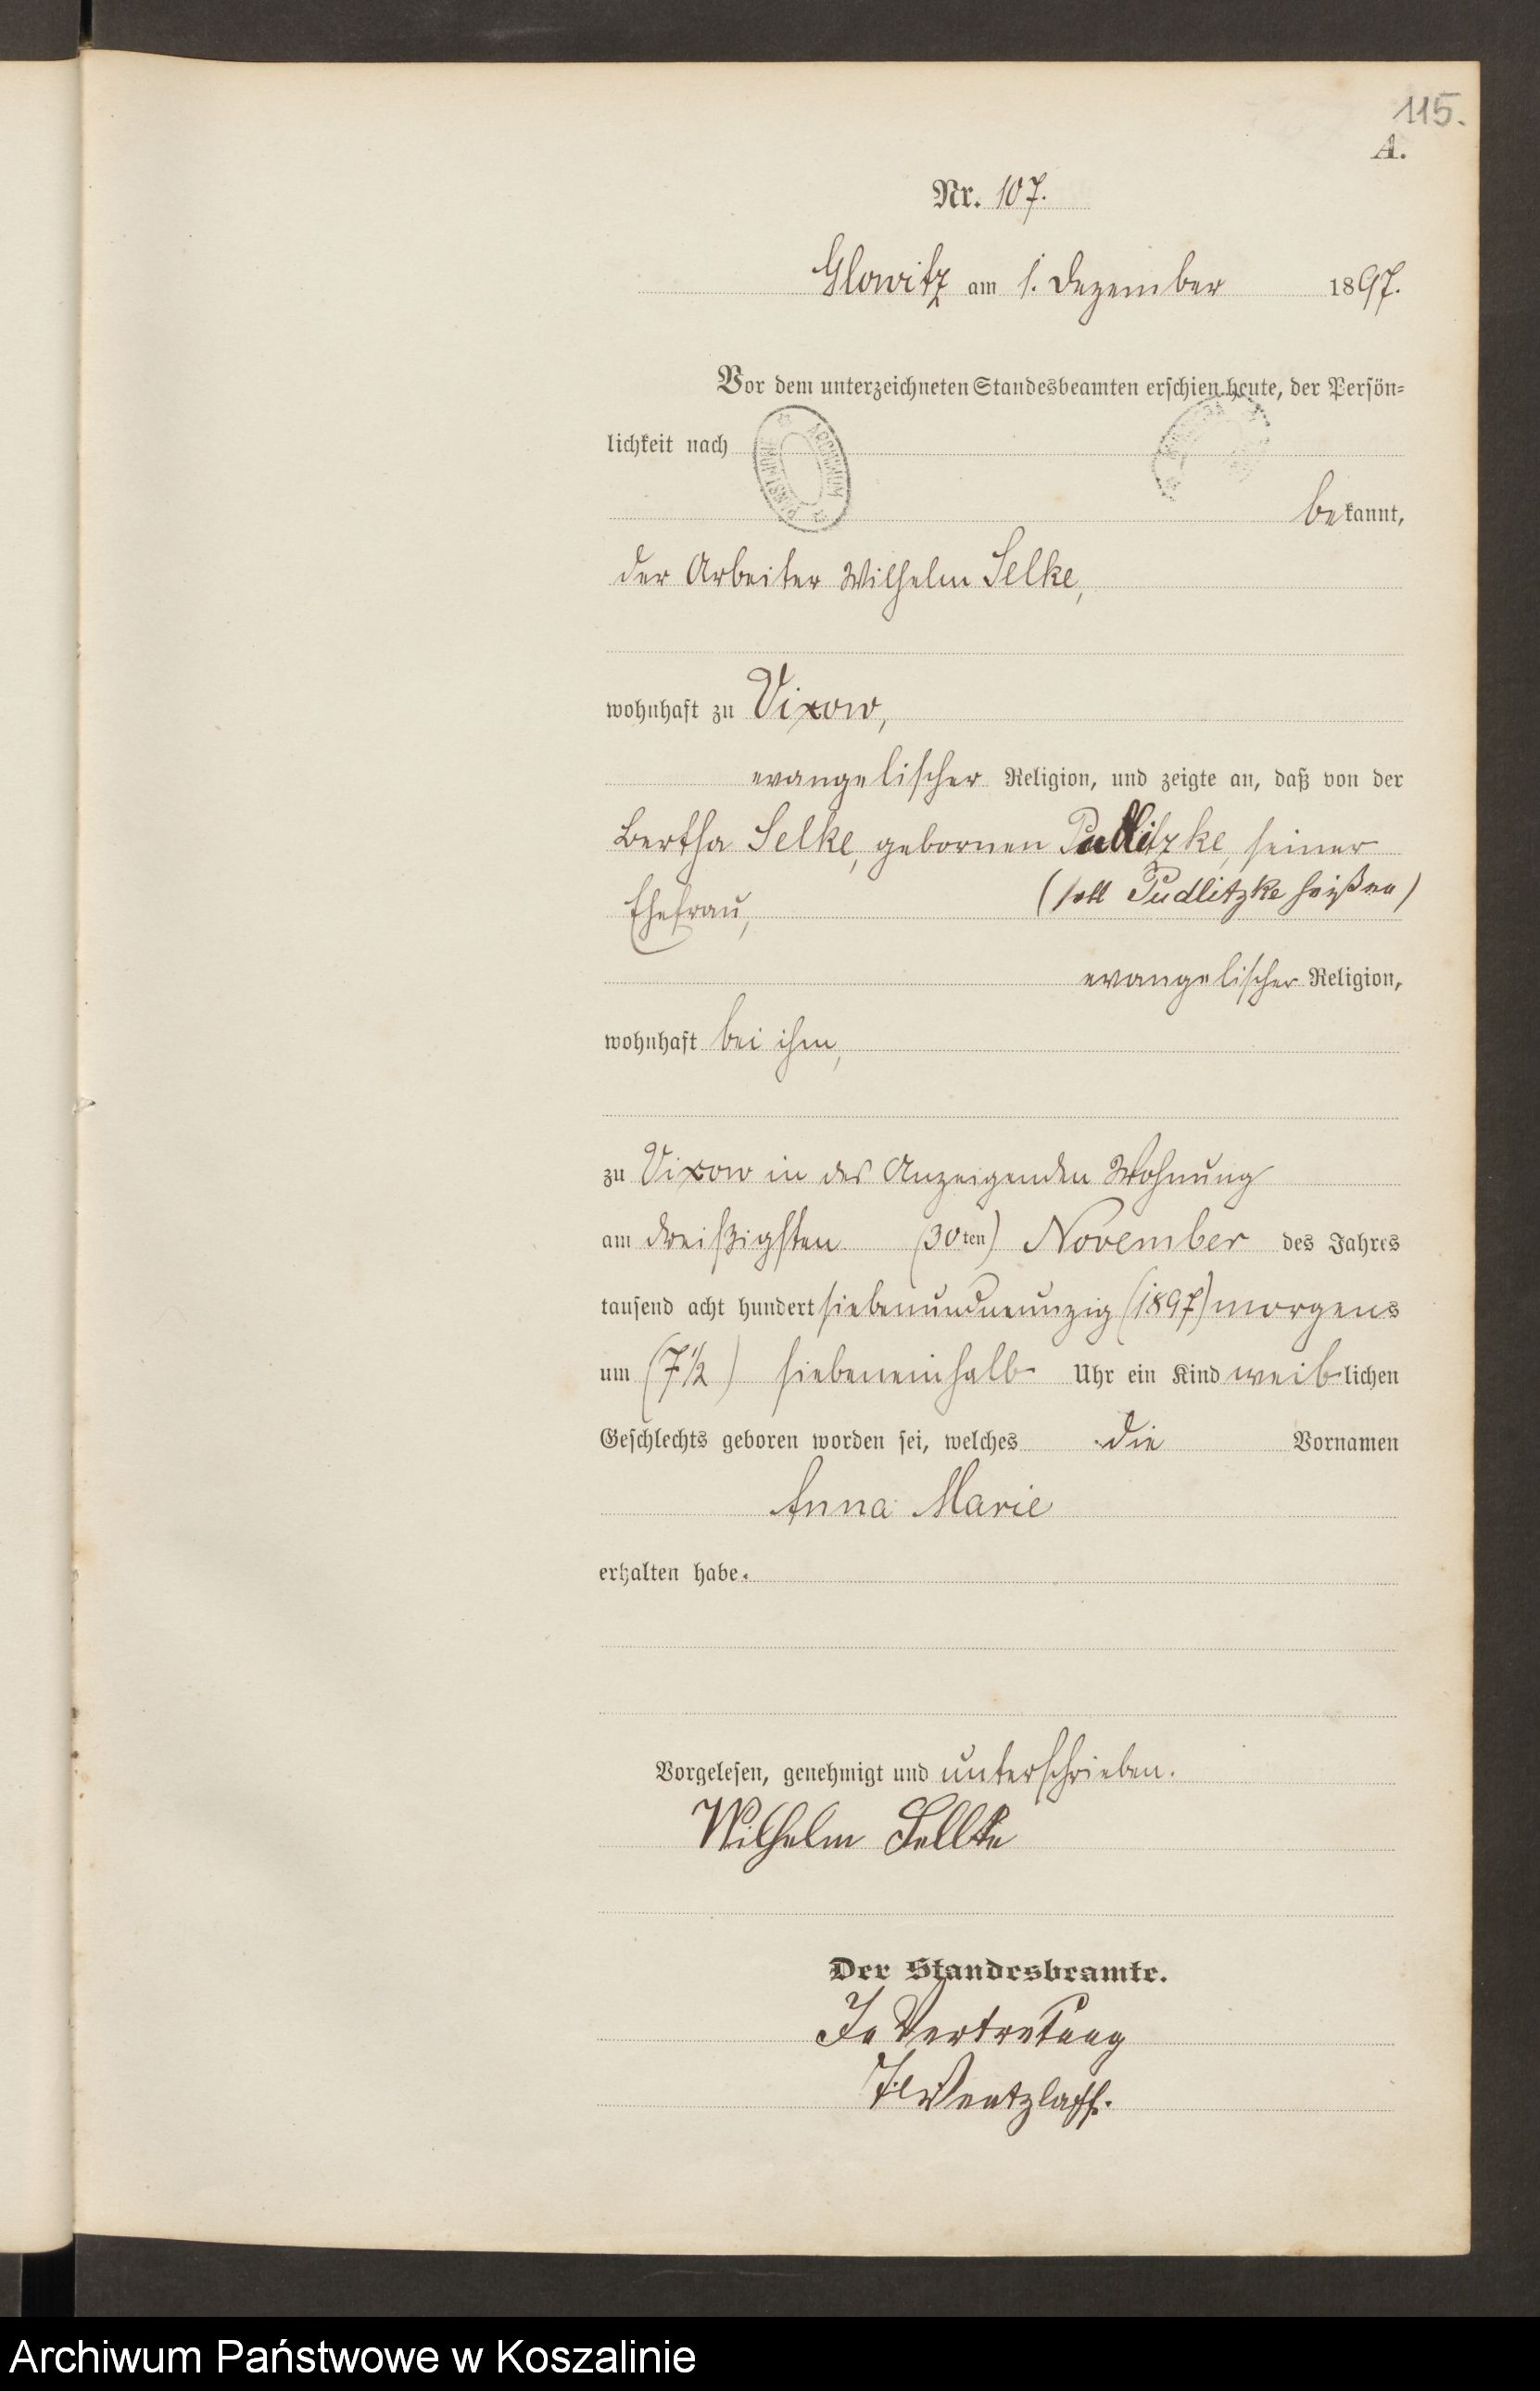 115.
A.
Nr. 107.
Glowitz am 1. Dezember 1897.
Vor dem unterzeichneten Standesbeamten erschien heute, der Persön-
lichkeit nach
ARCHIWUM PAŃSTWOWE
bekannt,
der Arbeiter Wilhelm Selke,
wohnhaft zu Vixow,
evangelischer Religion, und zeigte an, daß von der
Bertha Selke, gebornen Pudlitzke, seiner
Ehefrau, (soll Pudlitzke heißen)
evangelischer Religion,
wohnhaft bei ihm,
zu Vixow in des Anzeigenden Wohnung
am dreißigsten (30ten) November des Jahres
tausend acht hundert siebenundneunzig (1897) morgens
um (7 1/2) siebeneinhalb Uhr ein Kind weiblichen
Geschlechts geboren worden sei, welches die Vornamen
Anna Marie
erhalten habe.
Vorgelesen, genehmigt und unterschrieben.
Wilhelm Sellke
Der Standesbeamte.
In Vertretung
Wentzlaff.
Archiwum Państwowe w Koszalinie